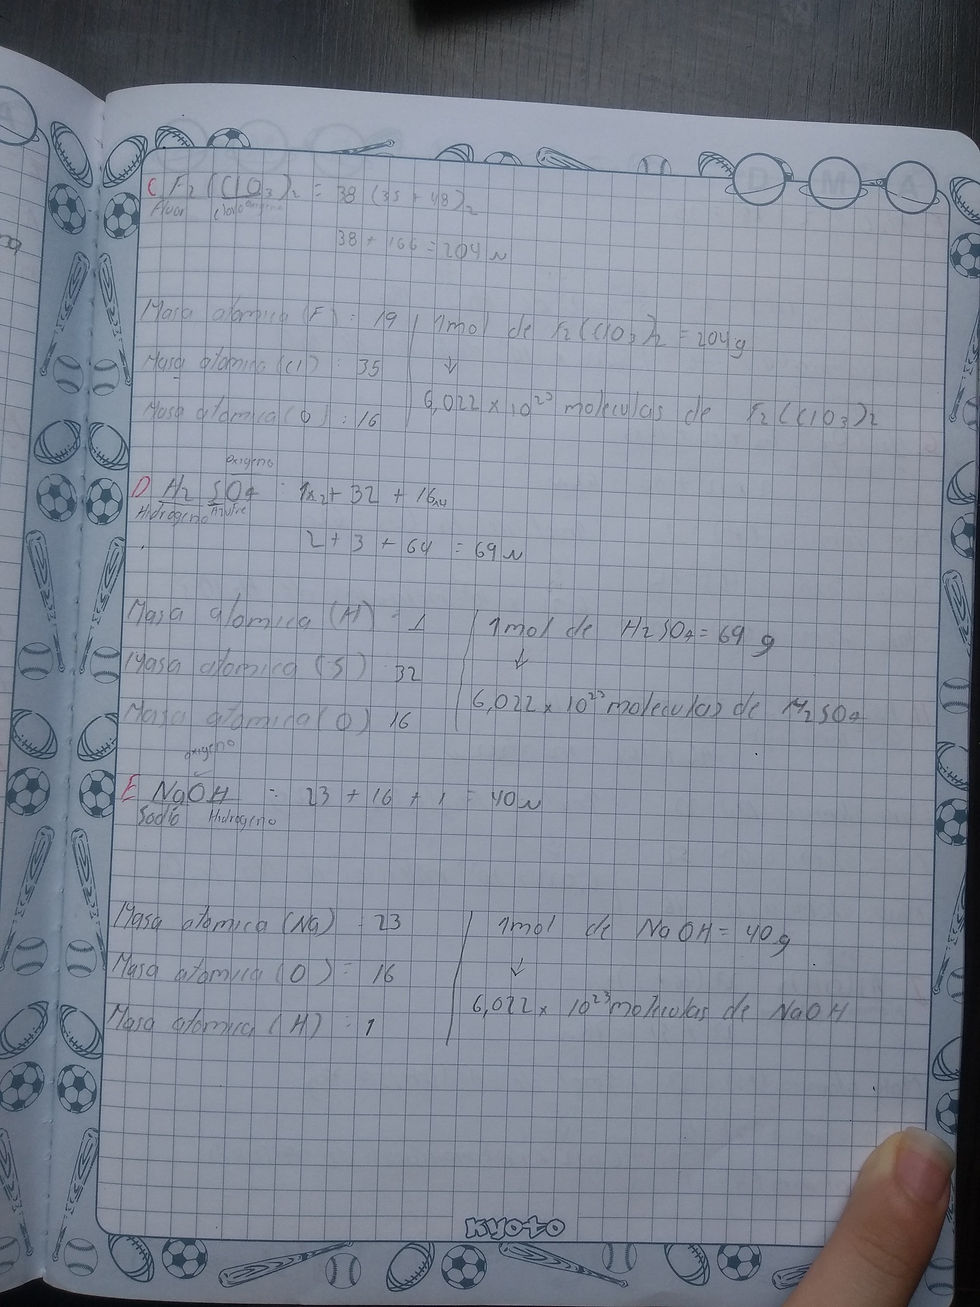 D M A
C F2 (ClO3)2 = 38 (35 + 48)2
Fluor Cloro oxigeno
38 + 166 = 204 u
Masa atomica (F) : 19
Masa atomica (Cl) : 35
Masa atomica (O) : 16
1mol de F2(ClO3)2 = 204g
↓
6,022 x 10²³ moleculas de F2(ClO3)2
oxigeno
D H2 SO4 : 1x2 + 32 + 16x4
Hidrogeno Azufre
2 + 3 + 64 = 69 u
Masa atomica (H) - 1
Masa atomica (S) 32
Masa atomica (O) 16
1mol de H2SO4 = 69 g
↓
6,022 x 10²³ moleculas de H2SO4
oxigeno
E NaOH : 23 + 16 + 1 = 40 u
Sodio Hidrogeno
Masa atomica (Na) : 23
Masa atomica (O) : 16
Masa atomica (H) : 1
1mol de NaOH = 40 g
↓
6,022 x 10²³ moleculas de NaOH
KYOTO